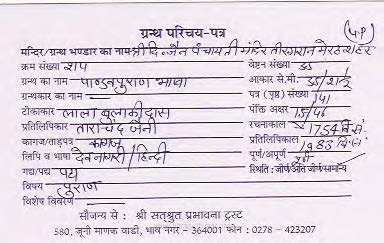 ग्रन्थ परिचय-पत्र
मन्दिर/ग्रन्थ भण्डार का नाम श्री दि. जैन पंचायती मंदिर तीरगरान मेरठ शहर
क्रम संख्या श्रप वेष्टन संख्या
ग्रन्थ का नाम पाण्डवपुराण भाषा आकार से.मी.
ग्रन्थकार का नाम पत्र (पृष्ठ) संख्या 141
टीकाकार लाला बुलाकीदास पंक्ति अक्षर 15/46
प्रतिलिपिकार ताराचंद जैनी रचनाकाल 1754 वि.सं.
कागज/ताड़पत्र कागज प्रतिलिपिकाल 1983 वि.सं.
लिपि व भाषा देवनागरी/हिन्दी पूर्ण/अपूर्ण पूर्ण
गद्य/पद्य पद्य स्थिति : जीर्ण/अति जीर्ण/सामान्य
विषय पुराण
विशेष विवरण
सौजन्य से : श्री सतश्रुत प्रभावना ट्रस्ट
580, जूनी माणक वाडी, भाव नगर - 364001 फोन : 0278 - 423207